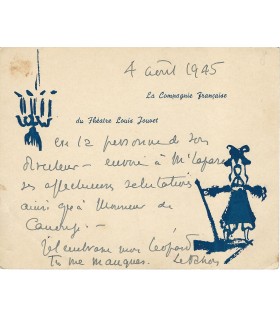 4 août 1945
La Compagnie Française
du Théâtre Louis Jouvet
en la personne de son
directeur - envoie à Mr
ses affectueuses salutations
ainsi qu'à Monsieur de
J'embrasse mon Léopard
Tu me manques.